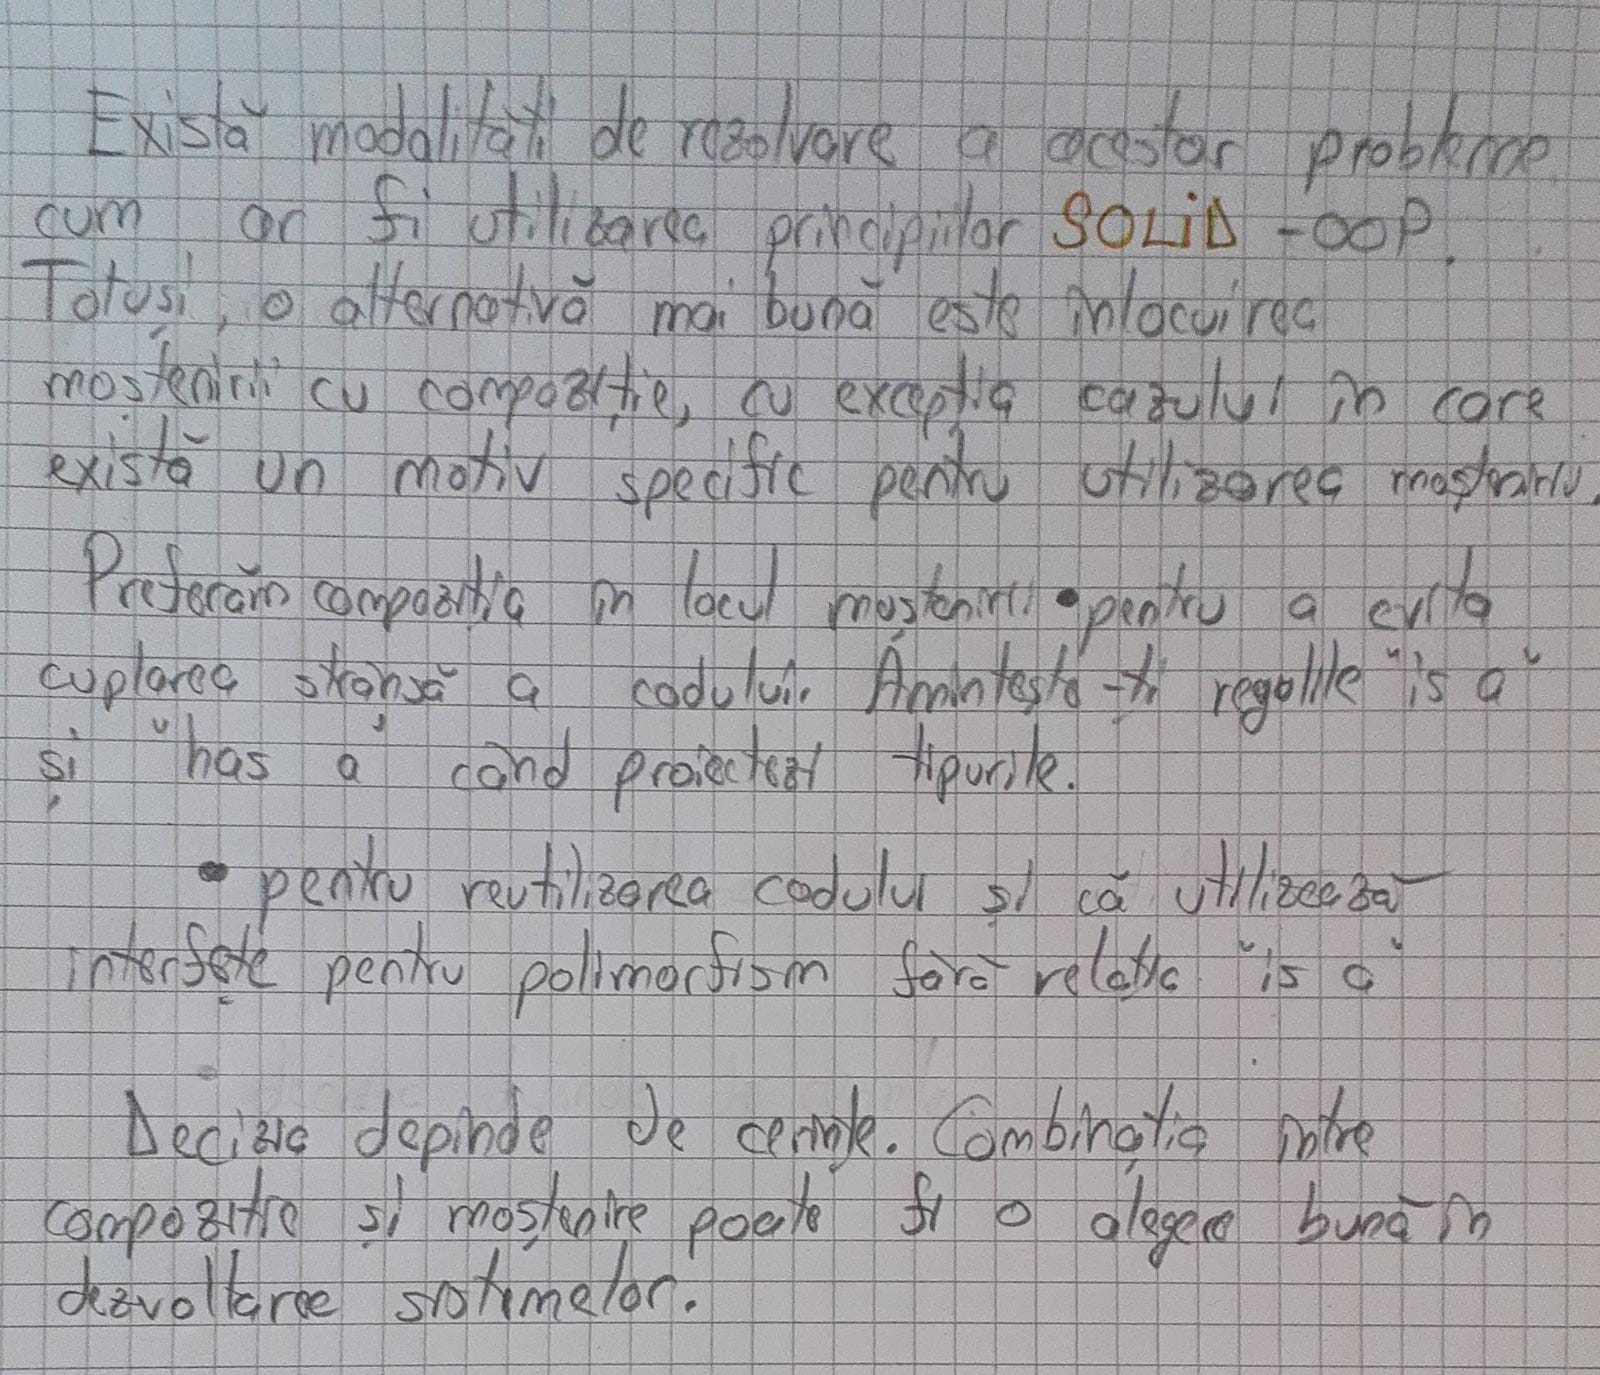 Există modalități de rezolvare a acestor probleme
cum ar fi utilizarea principiilor SOLID - OOP.
Totuși, o alternativă mai bună este înlocuirea
moștenirii cu compoziție, cu excepția cazului în care
există un motiv specific pentru utilizarea moștenirii.
Preferăm compoziția în locul moștenirii • pentru a evita
cuplarea strânsă a codului. Amintește-ți regolile "is a"
și "has a" când proiectezi tipurile.
• pentru reutilizarea codului și că utilizează
interfețe pentru polimorfism fără relație "is a"
Decizia depinde de cerințe. Combinația între
compoziție și moștenire poate fi o alegere bună în
dezvoltarea sistemelor.